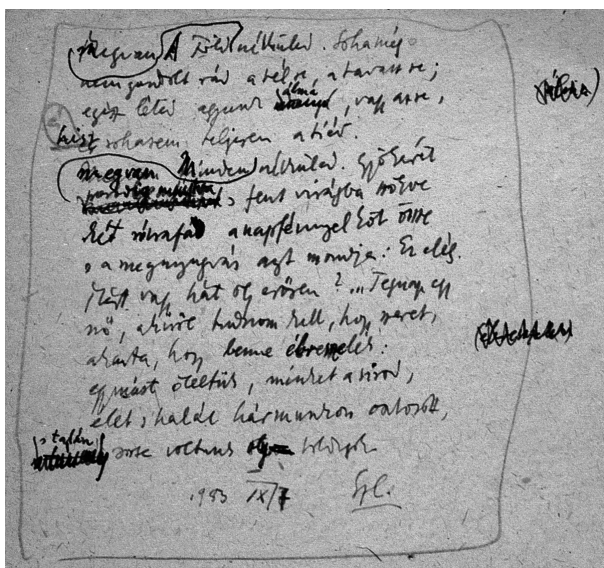 Megvan A Föld nélküled. Sohamég
nem gondolt rád a tél se, a tavasz se;
egész léted agyunk álma, vagy az se,
hisz sohasem teljesen a tiéd.
Megvan Minden nélküled. Gyökerét
s fent virágba szökve
két rózsafád a napfénnyel köt össze
s a megnyugvás azt mondja: Ez elég.
Mért vagy hát oly erősen? ... Tegnap egy
nő, akiről tudnom kell, hogy szeret,
akarta, hogy benne
egymást öleltük, minket a sirod,
élet s halál hármunkon osztozott,
s talán voltunk boldogok
1953 IX/7 SzL.